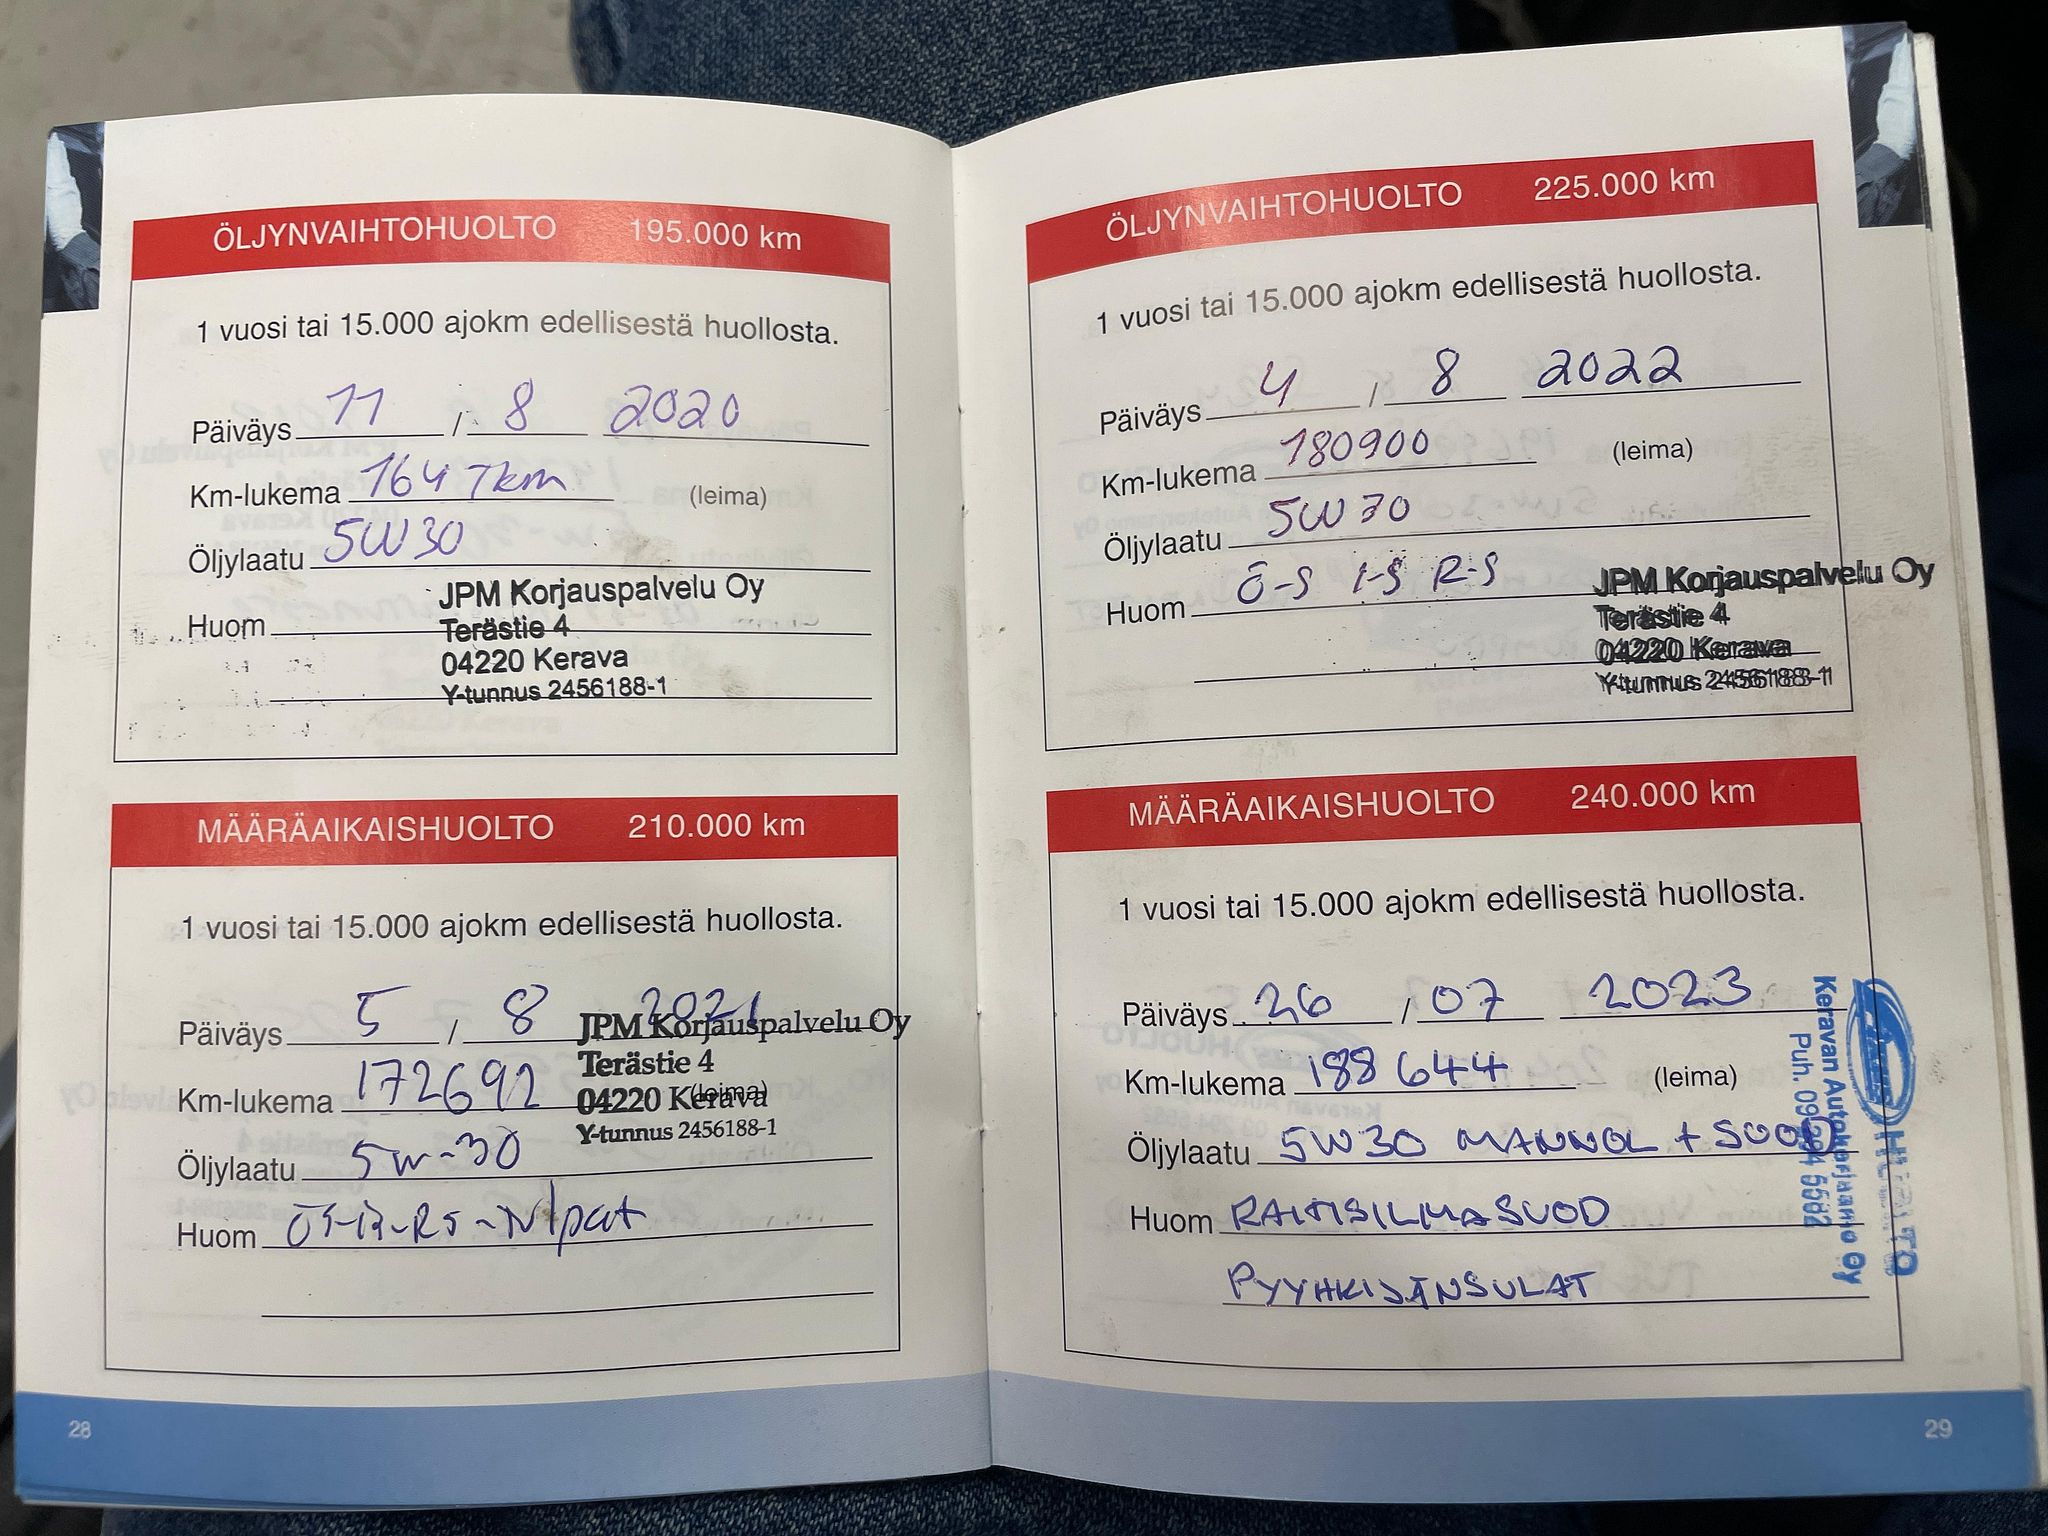 ÖLJYNVAIHTOHUOLTO 195.000 km
1 vuosi tai 15.000 ajokm edellisestä huollosta.
Päiväys 11 / 8 2020
Km-lukema 164 Tkm (leima)
Öljylaatu 5W30
JPM Korjauspalvelu Oy
Huom Terästie 4
04220 Kerava
Y-tunnus 2456188-1
MÄÄRÄAIKAISHUOLTO 210.000 km
1 vuosi tai 15.000 ajokm edellisestä huollosta.
Päiväys 5 / 8 2021
JPM Korjauspalvelu Oy
Terästie 4
Km-lukema 172692 (leima)
04220 Kerava
Y-tunnus 2456188-1
Öljylaatu 5w-30
Huom
28
ÖLJYNVAIHTOHUOLTO 225.000 km
1 vuosi tai 15.000 ajokm edellisestä huollosta.
Päiväys 4 / 8 2022
Km-lukema 180900 (leima)
Öljylaatu 5W30
Huom Ö-S I-S R-S
JPM Korjauspalvelu Oy
Terästie 4
04220 Kerava
Y-tunnus 2456188-1
MÄÄRÄAIKAISHUOLTO 240.000 km
1 vuosi tai 15.000 ajokm edellisestä huollosta.
Päiväys 26 / 07 2023
Km-lukema 188644 (leima)
Öljylaatu 5W30 MANNOL + SUOD
Huom RAITISILMASUOD
PYYHKIJÄNSULAT
HUOLTO
Keravan Autokorjaamo Oy
Puh. 09 294 5562
29